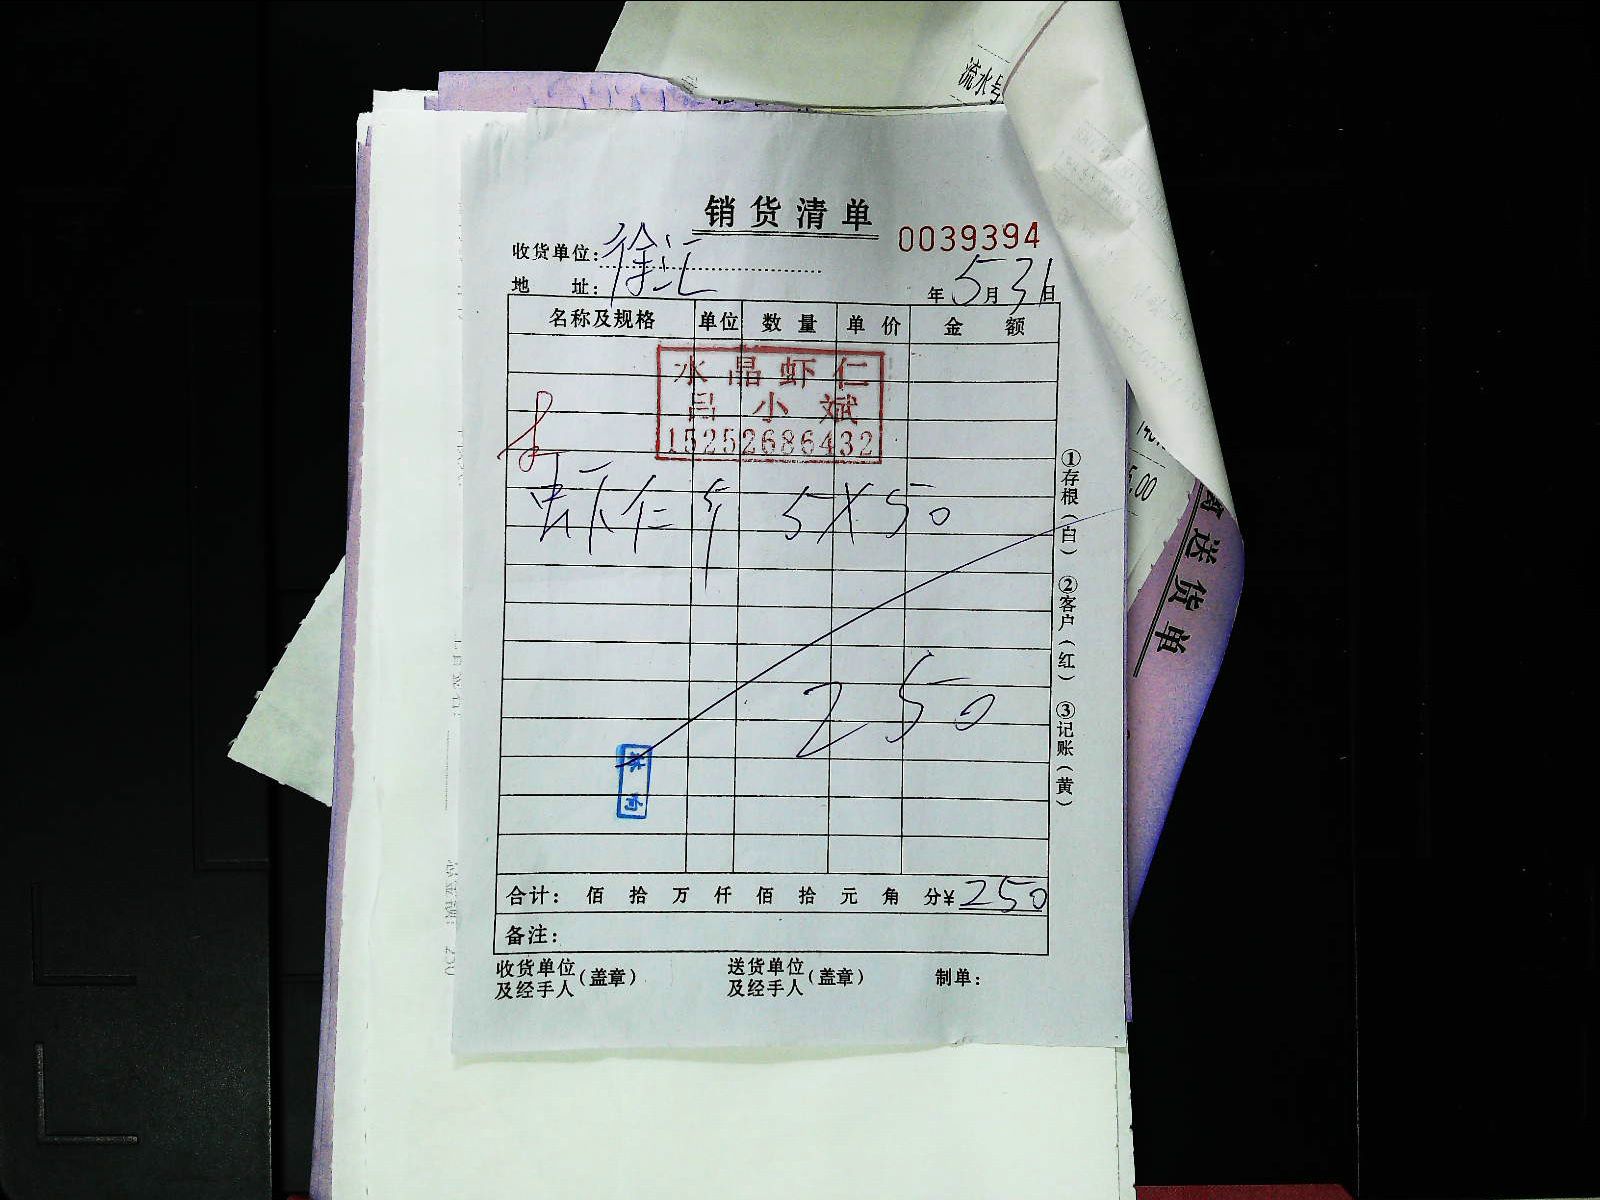 流水号
销货清单
0039394
收货单位: 徐汇
地 址:
年 5月31日
名称及规格 单位 数量 单价 金额
水晶虾仁
吕小斌
15252686432
虾仁 5×50
250
合计: 佰 拾 万 仟 佰 拾 元 角 分¥ 250
备注:
收货单位及经手人(盖章) 送货单位及经手人(盖章) 制单:
①存根(白) ②客户(红) ③记账(黄)
5.00
送货单